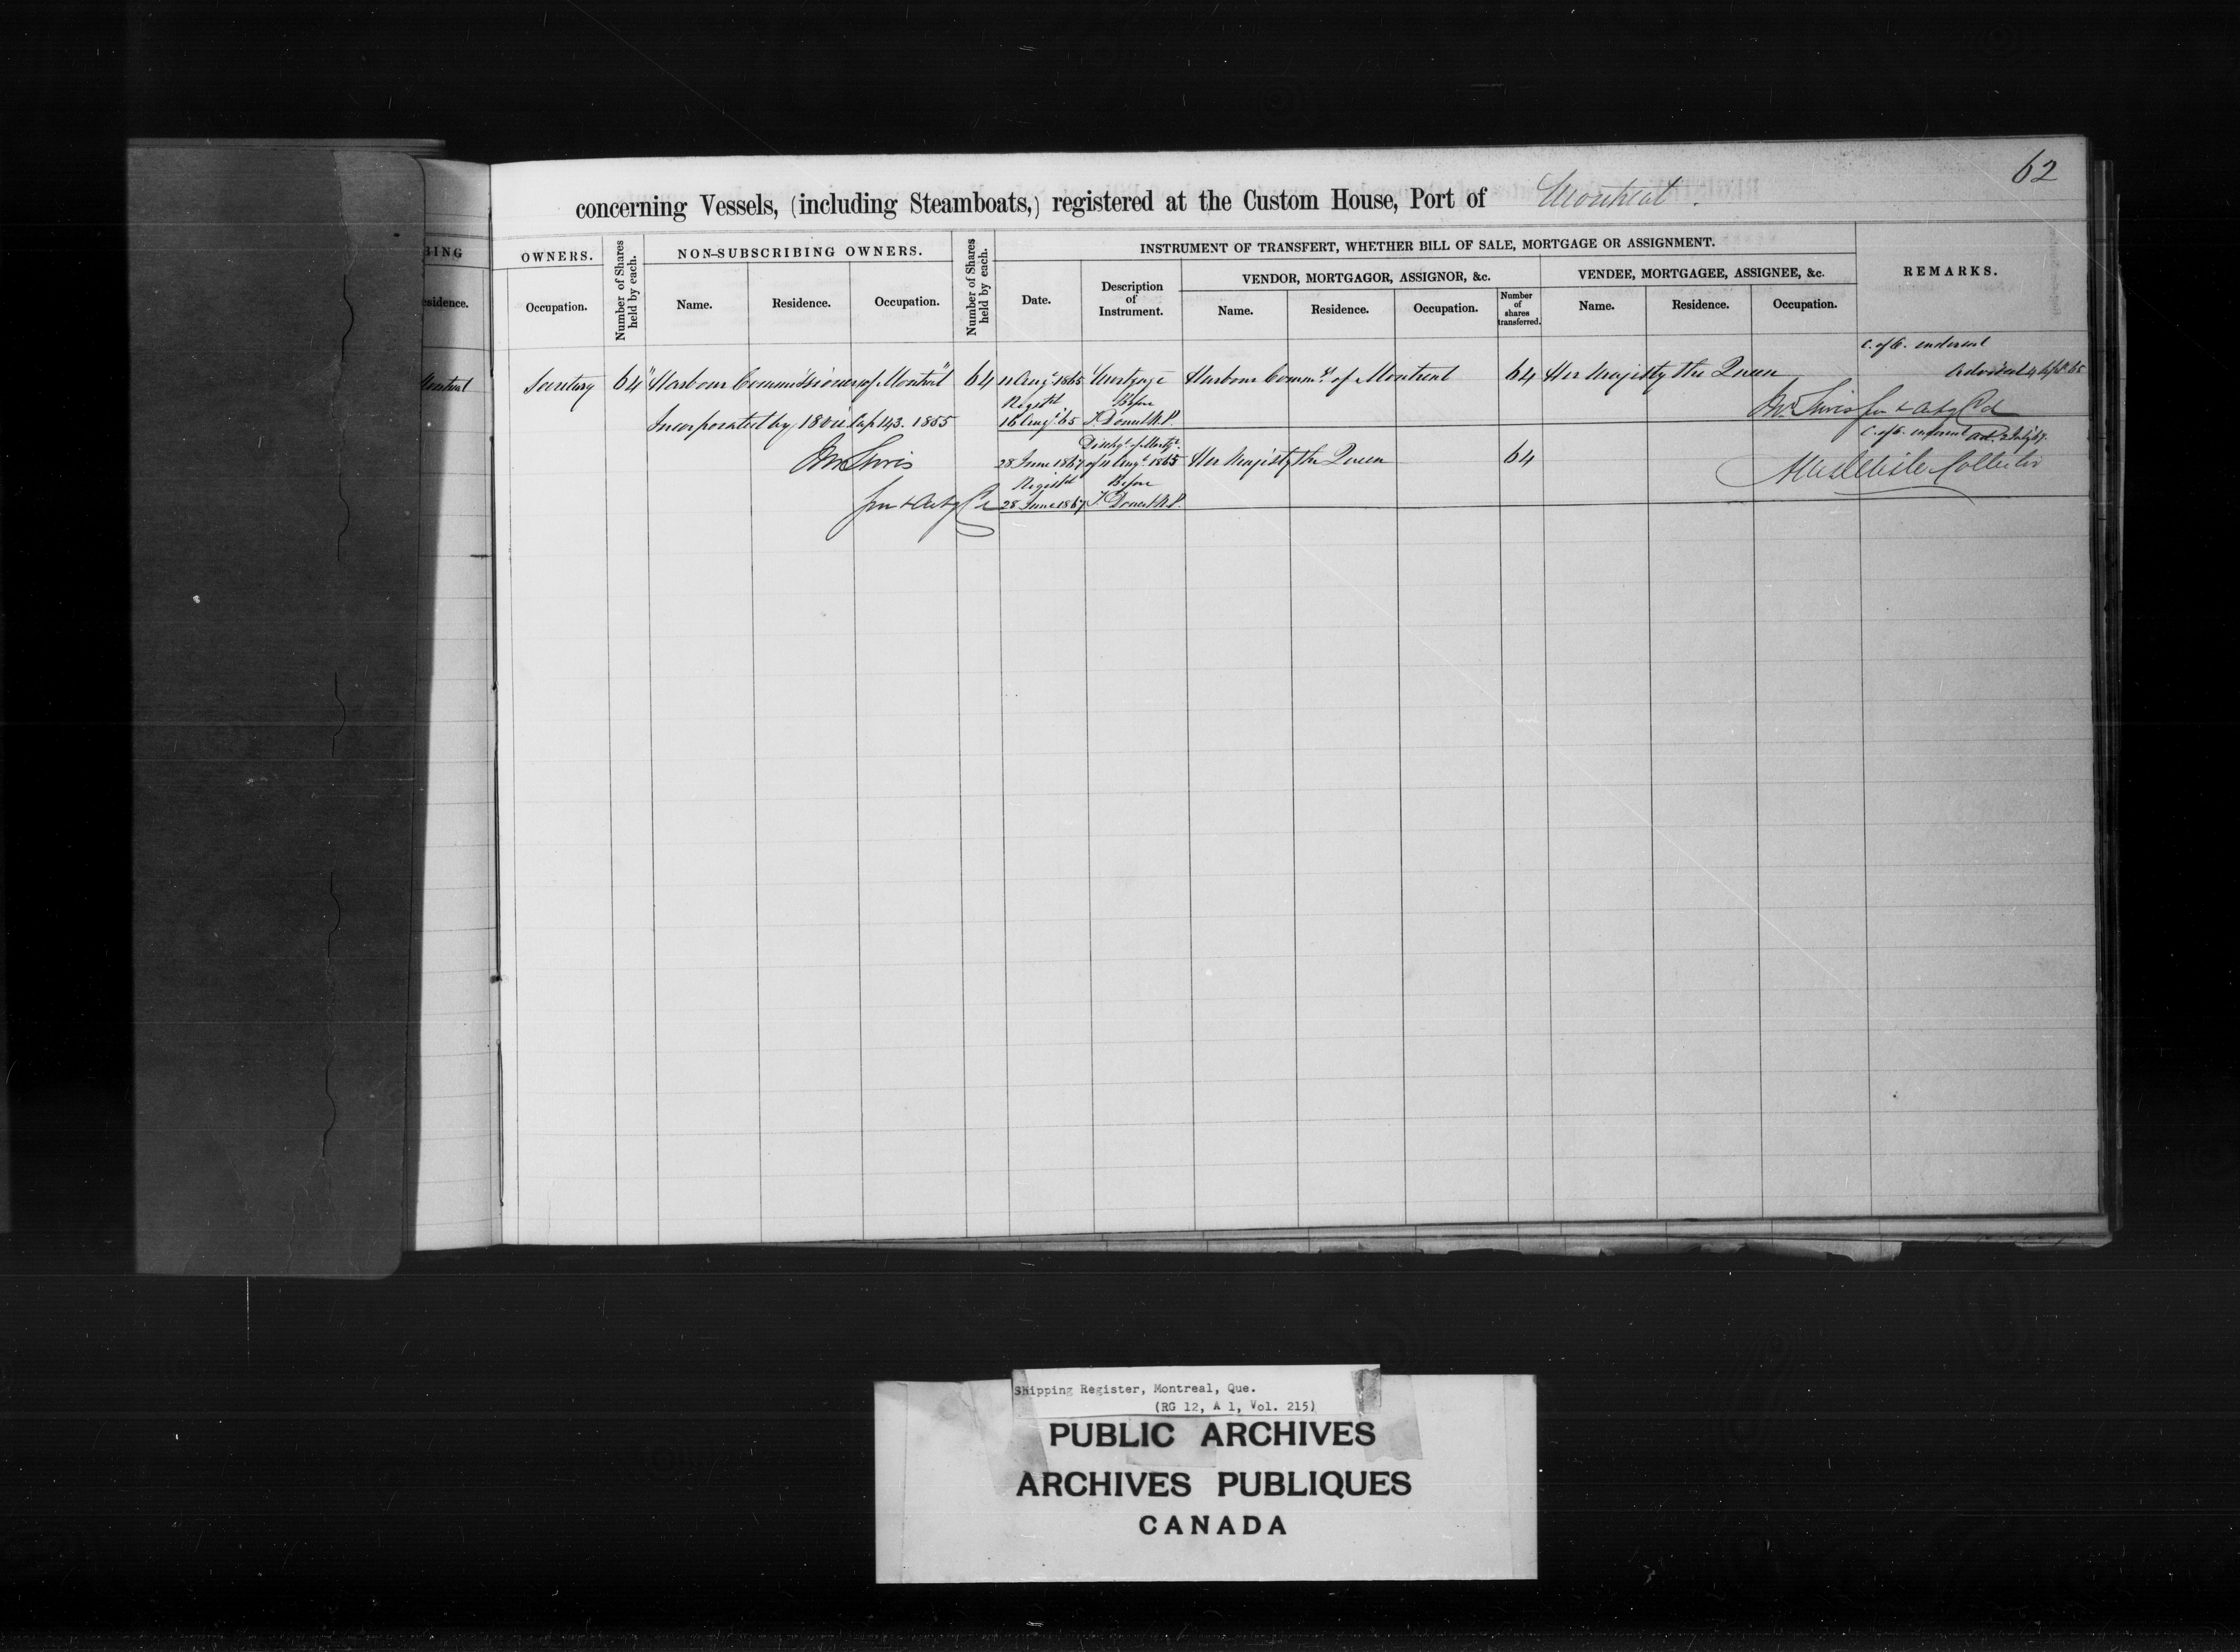 62
concerning Vessels, (including Steamboats,) registered at the Custom House, Port of Montreal.
BING
OWNERS.
Number of Shares held by each.
NON-SUBSCRIBING OWNERS.
Number of Shares held by each.
INSTRUMENT OF TRANSFERT, WHETHER BILL OF SALE, MORTGAGE OR ASSIGNMENT.
REMARKS.
VENDOR, MORTGAGOR, ASSIGNOR, &c.
VENDEE, MORTGAGEE, ASSIGNEE, &c.
esidence.
Occupation.
Name.
Residence.
Occupation.
Date.
Description of Instrument.
Name.
Residence.
Occupation.
Number of shares transferred.
Name.
Residence.
Occupation.
C. of O. endorsed
Montreal Secretary 64 "Harbour Commissioners of Montreal" 64 11 Augt 1865 Mortgage Harbour Commrs of Montreal 64 Her Majesty the Queen Advised 4 Sept 65
Registd Before
Incorporated by 18 Vic Cap 143. 1855 16 Augt 65 T. Doucet N.P.
Dischge of Mortge C. of O. endorsed ad. 2 July 67.
28 June 1867 of 11 Augt 1865 Her Majesty the Queen 64 Collector
Registd Before
28 June 1867 T. Doucet N.P.
Shipping Register, Montreal, Que.
(RG 12, A 1, Vol. 215)
PUBLIC ARCHIVES
ARCHIVES PUBLIQUES
CANADA